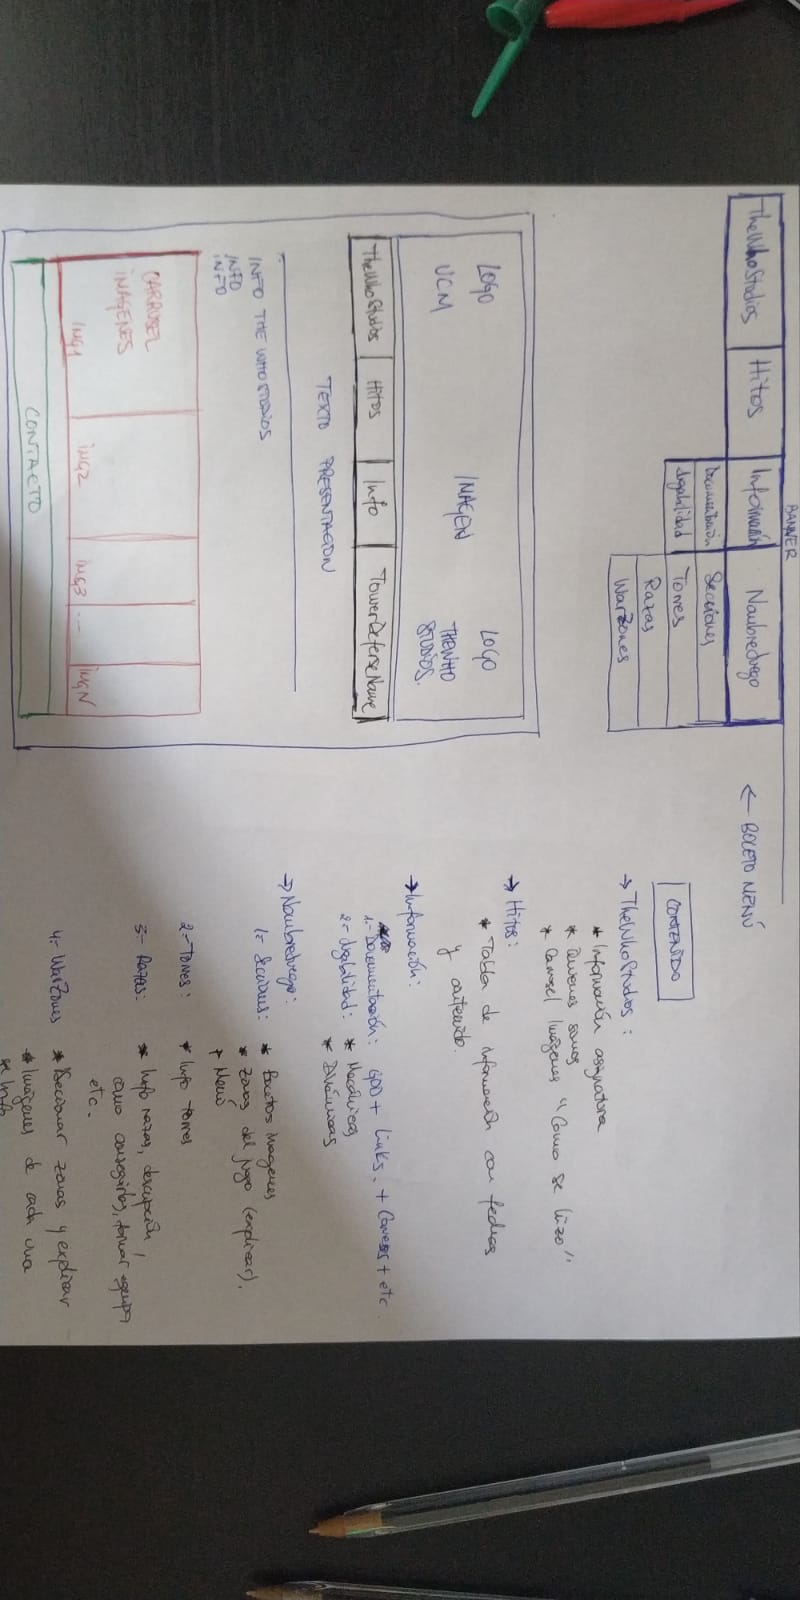 BANNER
TheWhoStudios
Hitos
Información
NombreJuego
Documentación
Secciones
Jugabilidad
Torres
Razas
WarZones
← BOCETO MENÚ
LOGO
UCM
IMAGEN
LOGO
THEWHO
STUDIOS.
TheWhoStudios
Hitos
Info
TowerDefenseName
TEXTO PRESENTACION
INFO THE WHO STUDIOS
INFO
INFO
CARRUSEL
IMAGENES
IMG1
IMG2
IMG3
...
IMGN
CONTACTO
CONTENIDO
→ TheWhoStudios:
* Información asignatura
* Quienes somos
* Carrosel Imágenes "Como se hizo"
→ Hitos:
* Tabla de información con fechas
y contenido.
→ Información:
1.- Documentación: GDD + Links. + + etc
2.- Jugabilidad: * Mecánicas
* Dinámicas
→ NombreJuego:
1.- Secciones: * Bocetos Imagenes
* Zonas del juego (explicar).
* Menú
2.- Torres: * Info torres
3.- Razas: * Info razas, descripción,
como conseguirlas, formar equipo
etc.
4.- WarZones * Seccionar zonas y explicar
* Imágenes de cada una
* Info